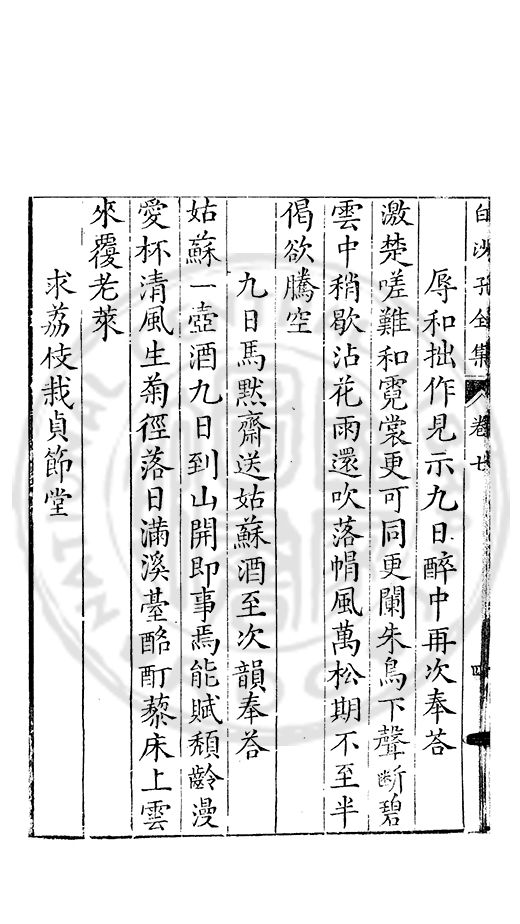 白沙子全集 卷七 四
辱和拙作見示九日醉中再次奉荅
激楚嗟難和霓裳更可同更闌朱鳥下聲斷碧
雲中稍歇沾花雨還吹落帽風萬松期不至半
偈欲騰空
九日馬默齋送姑蘇酒至次韻奉荅
姑蘇一壺酒九日到山開即事焉能賦頽齡漫
愛杯清風生菊徑落日滿溪臺酩酊藜床上雲
來覆老萊
求荔枝栽貞節堂